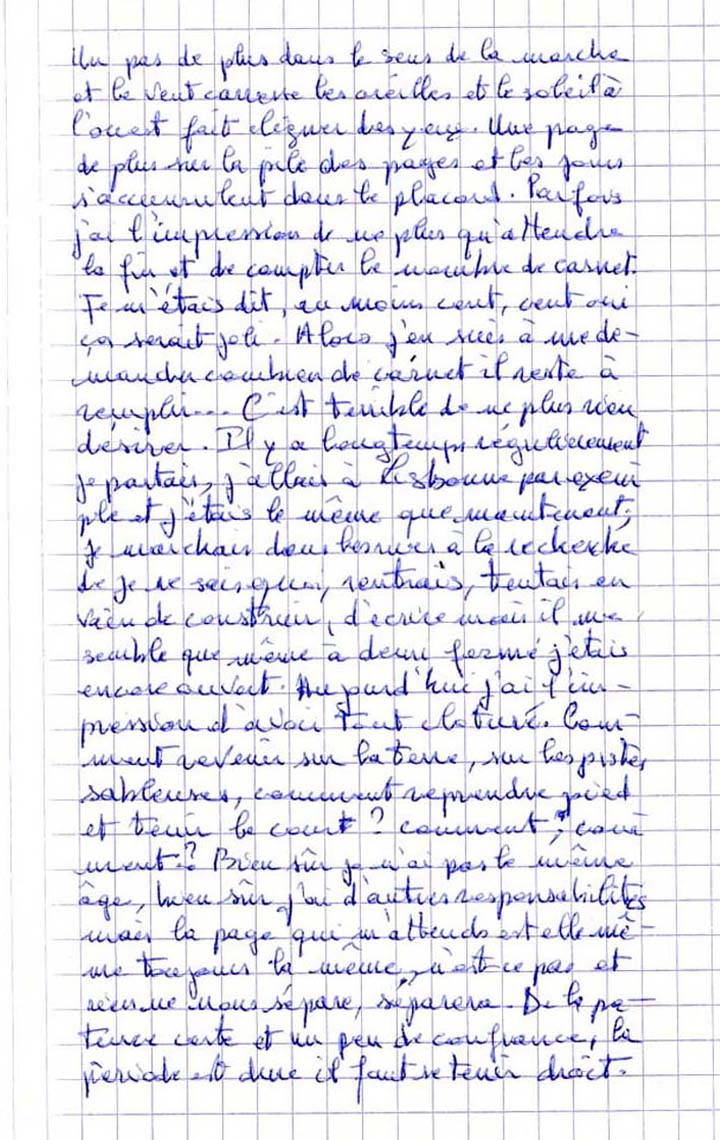 Un pas de plus dans le sens de la marche
et le vent caresse les oreilles et le soleil à
l'ouest fait cligner des yeux. Une page
de plus sur la pile des pages et les jours
s'accumulent dans le placard. Parfois
j'ai l'impression de ne plus qu'attendre
la fin et de compter le nombre de carnet.
Je m'étais dit, au moins cent, cent oui
ça serait joli. Alors j'en suis à me de-
mander combien de carnet il reste à
remplir... C'est terrible de ne plus rien
désirer. Il y a longtemps régulièrement
je partais, j'allais à Lisbonne par exem
ple et j'étais le même que maintenant;
je marchais dans les rues à la recherche
de je ne sais quoi, rentrais, tentais en
vain de construire, d'écrire mais il me
semble que même à demi fermé j'étais
encore ouvert. Aujourd'hui j'ai l'im-
pression d'avoir tout cloturé. Com-
ment revenir sur la terre, sur les pistes
sableuses, comment reprendre pied
et tenir le court ? comment, com
ment ? Bien sûr je n'ai pas le même
âge, bien sûr j'ai d'autres responsabilités
mais la page qui m'attends est elle mê-
me toujours la même, n'est ce pas et
rien ne nous sépare, séparera. De la pa-
tience certe et un peu de confiance, la
période est dure il faut se tenir droit.